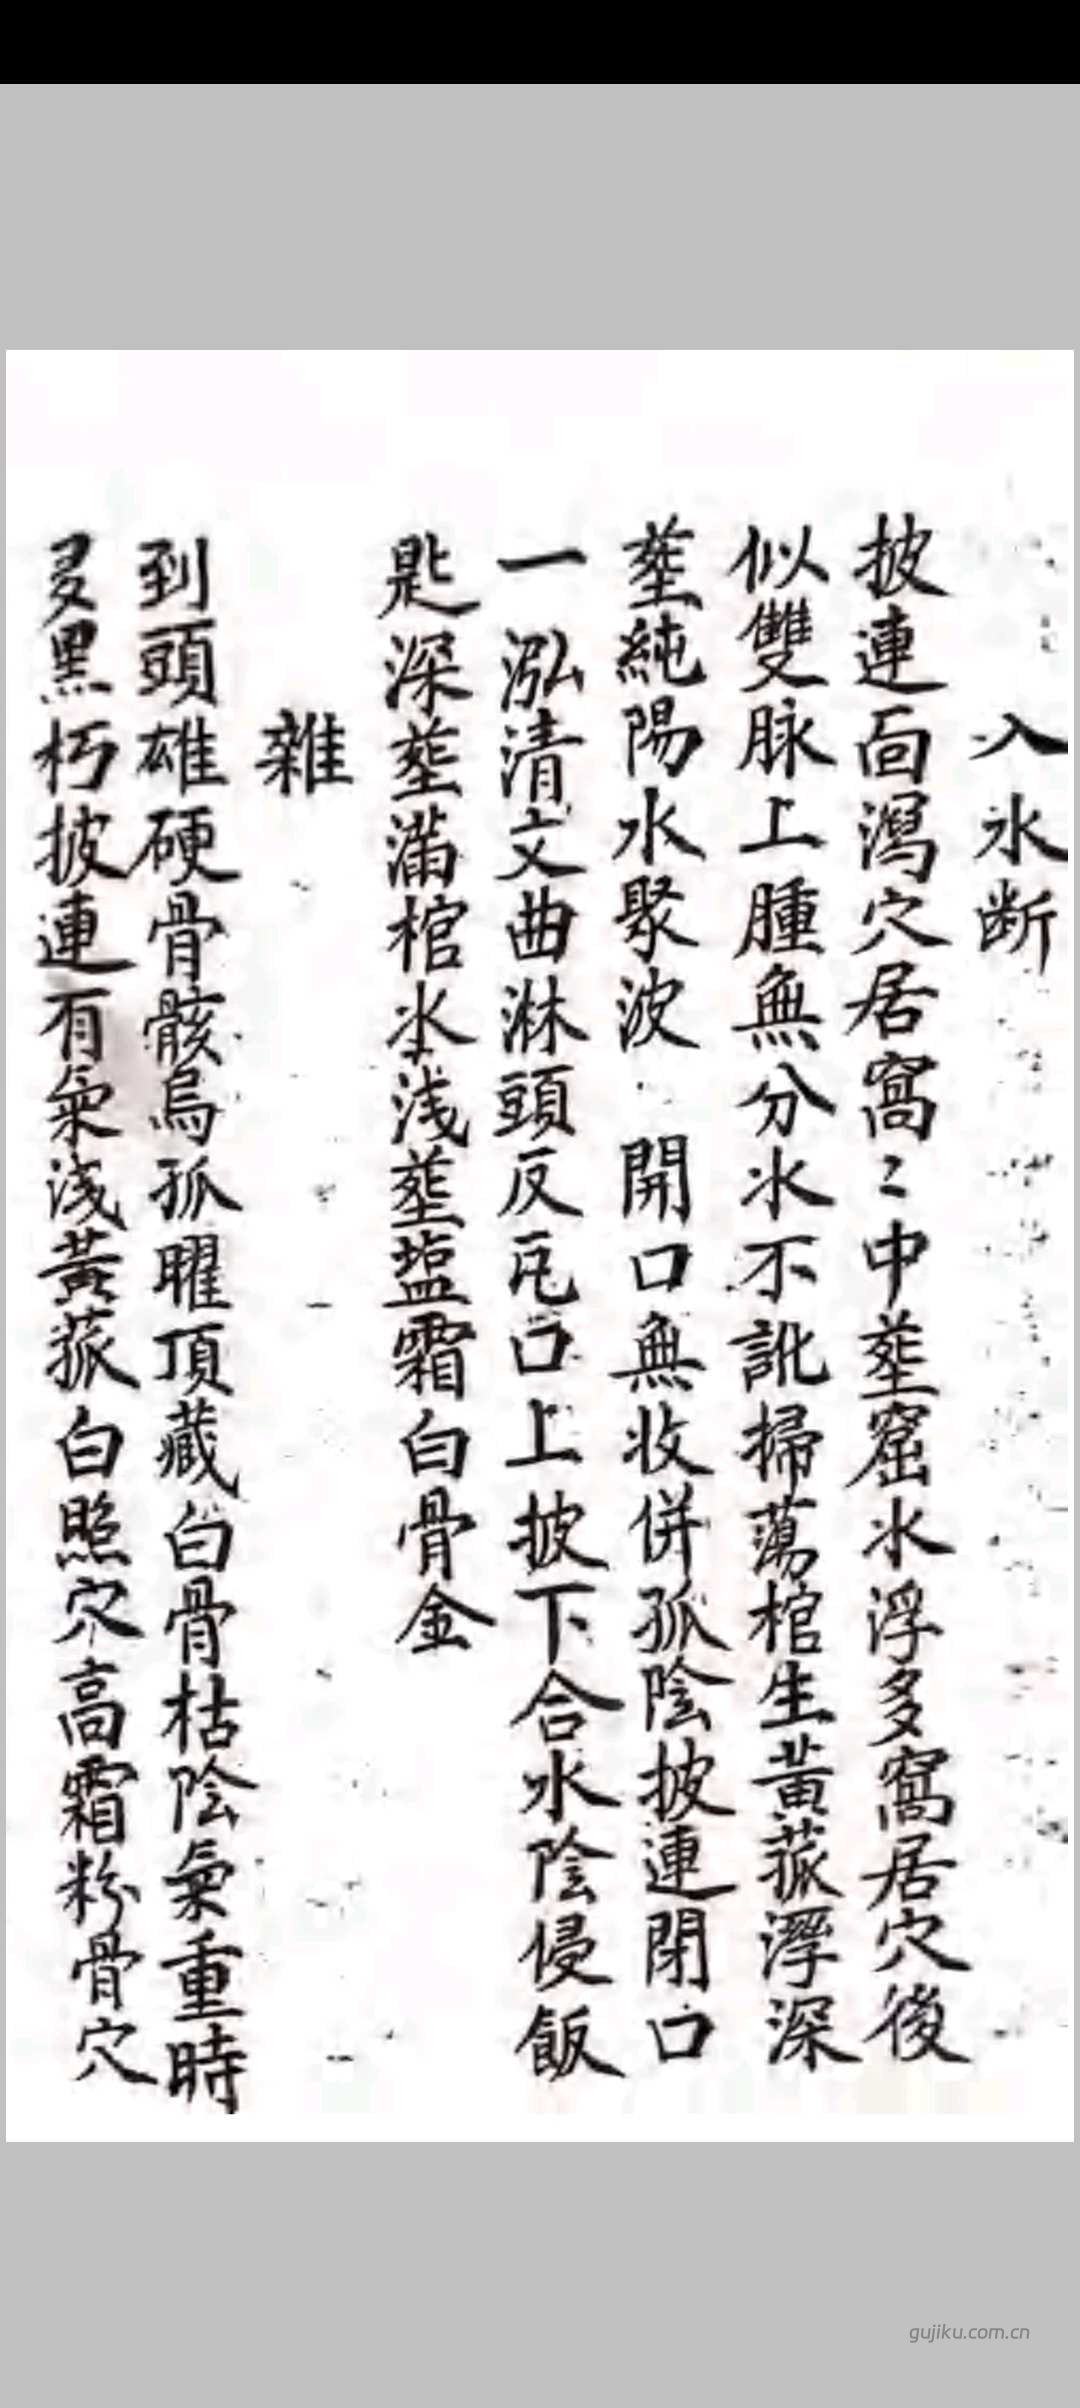 入水断
披連面瀉穴居窩〻中塟窟水浮多窩居穴後
似雙脉上腫無分水不訛掃蕩棺生黃菰滜深
塟純陽水聚波 開口無收併孤陰披連閉口
一泓清文曲淋頭反瓦口上披下合水陰侵飯
匙深塟滿棺水浅塟塩霜白骨金
雜
到頭雄硬骨骸烏孤曜頂藏白骨枯陰氣重時
多黑朽披連有氣浅黃菰白照穴高霜粉骨穴
gujiku.com.cn